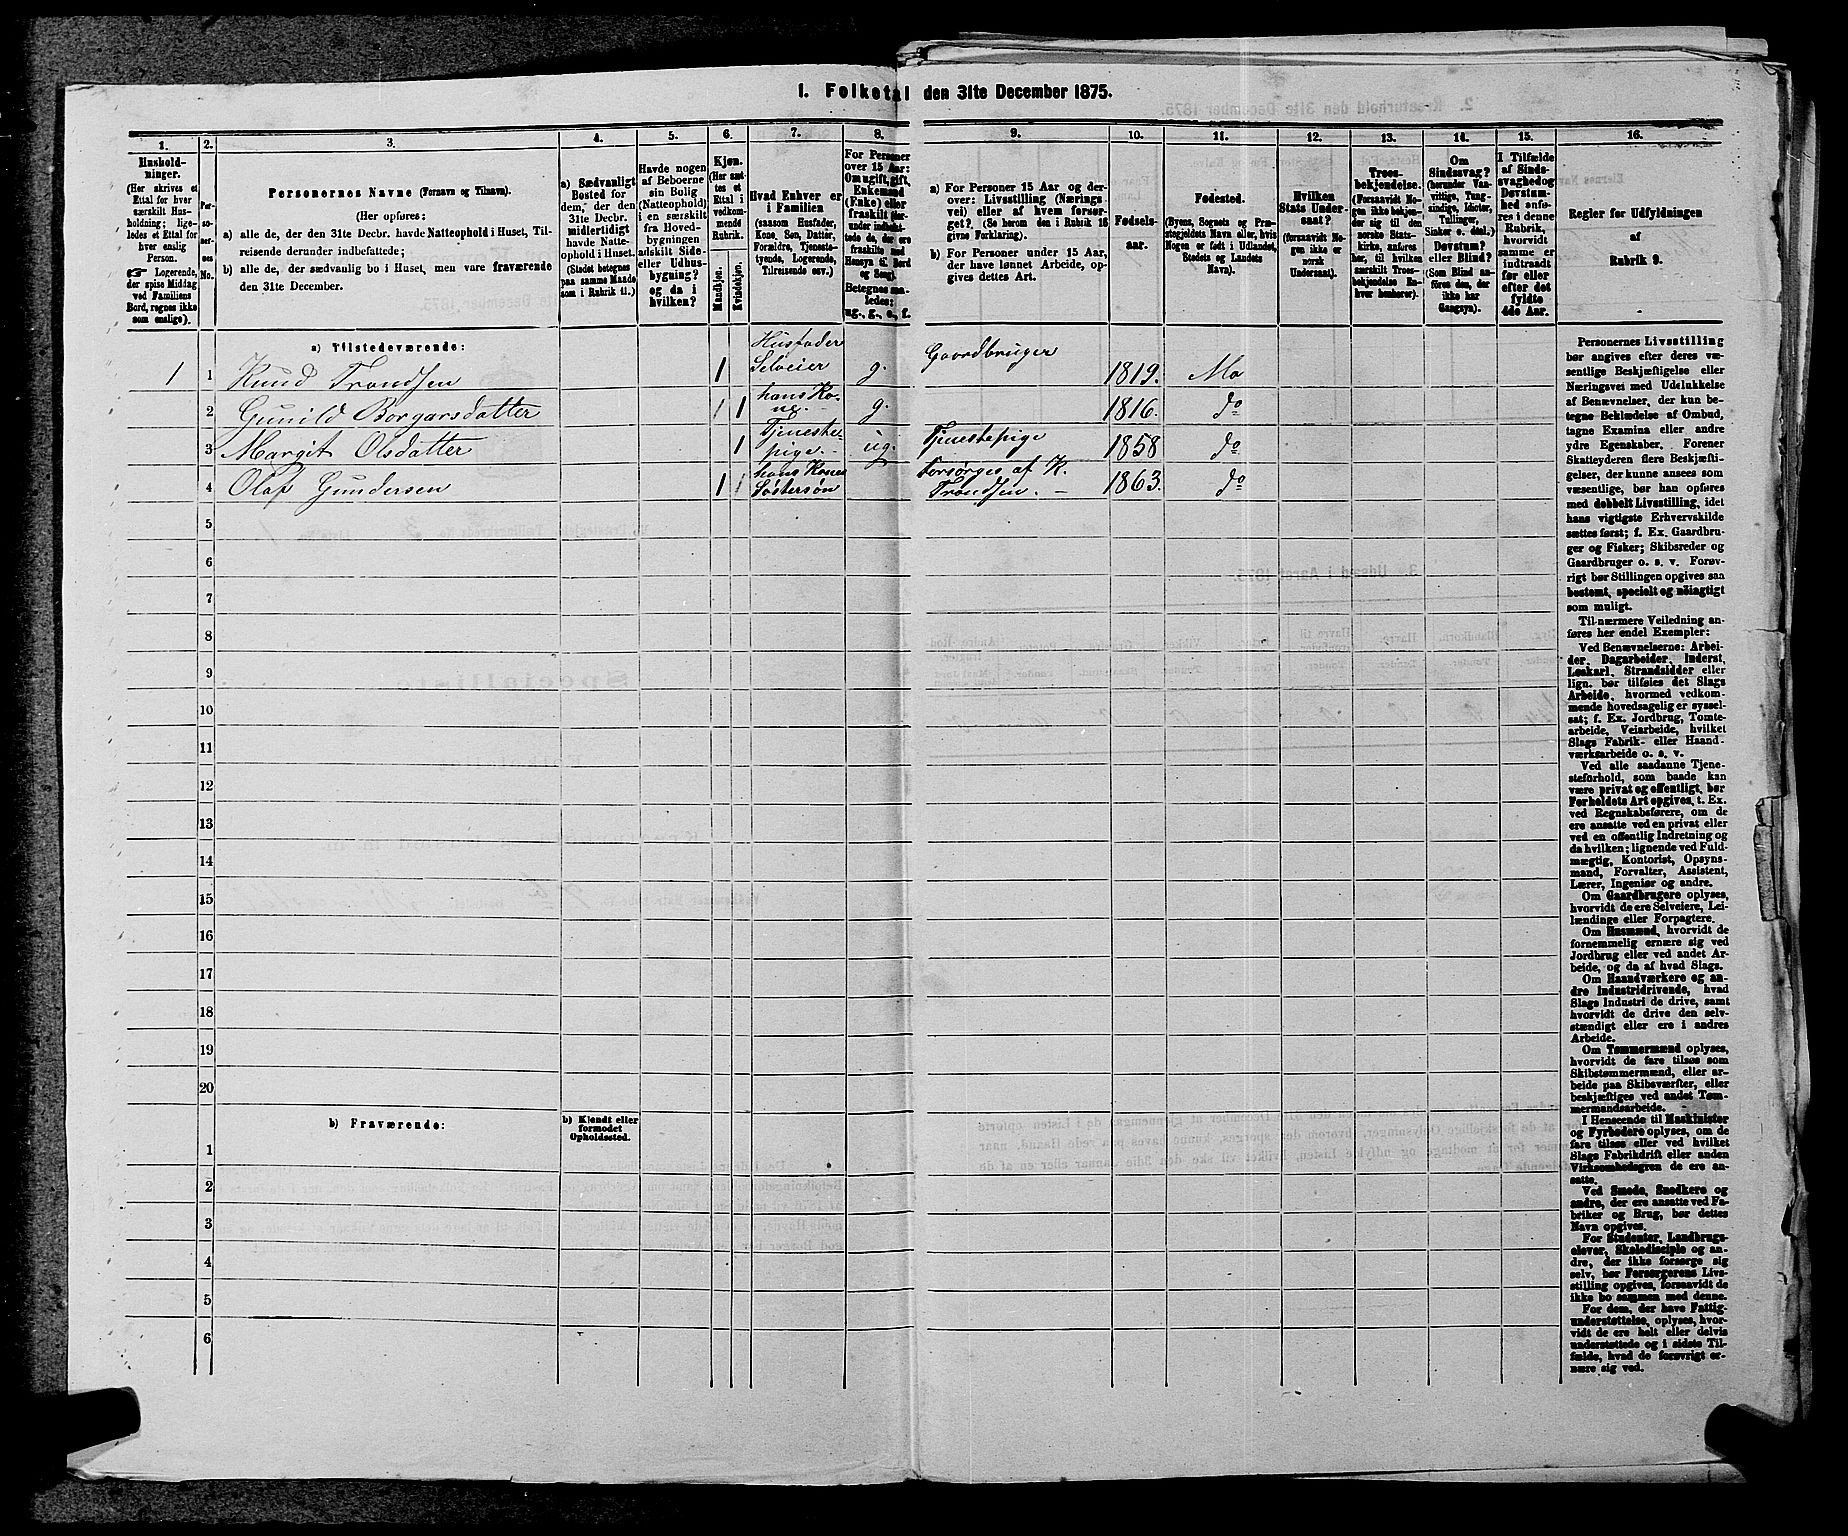 1. Folketal den 31te December 1875.
1. 2. 3. 4. 5. 6. 7. 8. 9. 10. 11. 12. 13. 14. 15. 16.
Hushold-
ninger.
(Her skrives et
Ettal for hver
særskilt Hus-
holdning; lige-
ledes et Ettal for
hver enslig
Person.
☞ Logerende,
der spise Middag
ved Familiens
Bord, regnes ikke
som enslige).
Personernes No.
Personernes Navne (Fornavn og Tilnavn).
(Her opføres:
a) alle de, der den 31te Decbr. havde Natteophold i Huset, Til-
reisende derunder indbefattede;
b) alle de, der sædvanlig bo i Huset, men vare fraværende
den 31te December.
a) Sædvanligt
Bosted for
dem, der den
31te Decbr.
midlertidigt
havde Natte-
ophold i Huset.
(Stedet betegnes
paa samme Maade
som i Rubrik 11.)
Havde nogen
af Beboerne
sin Bolig
(Natteophold)
i en særskilt
fra Hoved-
bygningen
adskilt Side-
eller Udhus-
bygning?
og da i
hvilken?
Kjøn.
(Her sæt-
tes et
Ettal i
vedkom-
mende
Rubrik.
Mandkjøn.
Kvindekjøn.
Hvad Enhver er
i Familien
(saasom Husfader,
Kone, Søn, Datter,
Forældre, Tjeneste-
tyende, Logerende,
Tilreisende osv.)
For Personer
over 15 Aar:
Om ugift, gift,
Enkemand
(Enke) eller
fraskilt (der-
under indbefat-
tede de, der ere
fraskilte med
Hensyn til Bord
og Seng).
Betegnes saa-
ledes:
ug., g., e., f.
a) For Personer 15 Aar og der-
over: Livsstilling (Nærings-
vei) eller af hvem forsør-
get? (Se herom den i Rubrik 16
givne Forklaring).
b) For Personer under 15 Aar,
der have lønnet Arbeide, op-
gives dettes Art.
Fødsels-
aar.
Fødested.
(Byens, Sognets og Præ-
stegjeldets Navn eller, hvis
Nogen er født i Udlandet,
Stedets og Landets
Navn).
Hvilken
Stats Under-
saat?
(forsaavidt No-
gen ikke er
norsk
Undersaat).
Troes-
bekjendelse.
(Forsaavidt No-
gen ikke beken-
der sig til den
norske Stats-
kirke, anføres
her, til hvilket
særskilt Troes-
bekjendelse En-
hver henhører).
Om
Sindssvag?
(herunder Van-
vittige, Tung-
sindige, Idioter,
Tullinger,
Sinker o. desl.)
Døvstum?
eller Blind?
(Som Blind an-
føres den, der
ikke har
Gangsyn).
I Tilfælde
af Sinds-
svaghed og
Døvstum-
hed anfø-
res i denne
Rubrik,
hvorvidt
samme er
indtraadt
før eller
efter det
fyldte
4de Aar.
Regler for Udfyldningen
af
Rubrik 9.
a) Tilstedeværende:
1 1 Knud Trondsen 1 Husfader Selveier g. Gaardbruger 1819. Mo
2 Gunild Borgarsdatter 1 hans Kone. g. 1816. do
3 Margit Olsdatter 1 Tjenestepige. ug. Tjenestepige 1858 do
4 Olaf Gundersen 1 hans Kones Søstersøn forsørges af K. Trondsen. 1863. do
5
6
7
8
9
10
11
12
13
14
15
16
17
18
19
20
b) Fraværende:
b) Kjendt eller
formodet
Opholdssted.
1
2
3
4
5
6
Personernes Livsstilling
bør angives efter deres væ-
sentlige Beskjæftigelse eller
Næringsvei med Udelukkelse
af Benævnelser, der kun be-
tegne Beklædelse af Ombud,
tagne Examina eller andre
ydre Egenskaber. Forener
Skatteyderen flere Beskjæfti-
gelser, der kunne ansees som
væsentlige, bør han opføres
med dobbelt Livsstilling, idet
hans vigtigste Erhvervskilde
sættes først; f. Ex. Gaardbru-
ger og Fisker; Skibsreder og
Gaardbruger o. s. v. Forøv-
rigt bør Stillingen opgives saa
bestemt, specielt og nöiagtigt
som muligt.
Til nærmere Veiledning an-
føres her endel Exempler:
Ved Benævnelserne: Arbei-
der, Dagarbeider, Inderst,
Løskarl, Strandsidder eller
lign. bør tilføies det Slags
Arbeide, hvormed vedkom-
mende hovedsagelig er syssel-
sat; f. Ex. Jordbrug, Tomte-
arbeide, Veiarbeide, hvilket
Slags Fabrik- eller Haand-
værksarbeide o. s. v.
Ved alle saadanne Tjene-
steforhold, som baade kan
være privat og offentligt, bør
Forholdets Art opgives, t. Ex.
ved Regnskabsførere, om de
ere ansatte ved en privat eller
ved en offentlig Indretning og
da hvilken; lignende ved Fuld-
mægtig, Kontorist, Opsyns-
mand, Forvalter, Assistent,
Lærer, Ingeniør og andre.
Om Gaardbrugere oplyses,
hvorvidt de ere Selveiere, Lei-
lændinge eller Forpagtere.
Om Husmænd, hvorvidt de
fornemmelig ernære sig ved
Jordbrug eller ved andet Ar-
beide, og da af hvad Slags.
Om Haandværkere og an-
dre Industridrivende, hvad
Slags Industri de drive, samt
hvorvidt de drive den selv-
stændigt eller ere i andres
Arbeide.
Om Tømmermænd oplyses,
hvorvidt de fare tilsøs som
Skibstømmermænd, eller ar-
beide paa Skibsværfter, eller
beskjæftiges ved andet Tøm-
mermandsarbeide.
I Henseende til Maskinister
og Fyrbødere oplyses, om de
fare tilsøs eller ved hvilket
Slags Fabrikdrift eller anden
Virksomhedsgren de ere an-
satte.
Ved Smede, Snedkere og
andre, der ere ansatte ved Fa-
briker og Brug, bør dettes
Navn opgives.
For Studenter, Landbrugs-
elever, Skoledisciple og an-
dre, der ikke forsørge sig
selv, bør Forsørgerens Livs-
stilling opgives, forsaavidt de
ikke bo sammen med denne.
For dem, der have Fattig-
understøttelse, oplyses, hvor-
vidt de ere helt eller delvis
understøttede og i sidste Til-
fælde, hvad de forøvrigt er-
nære sig ved.